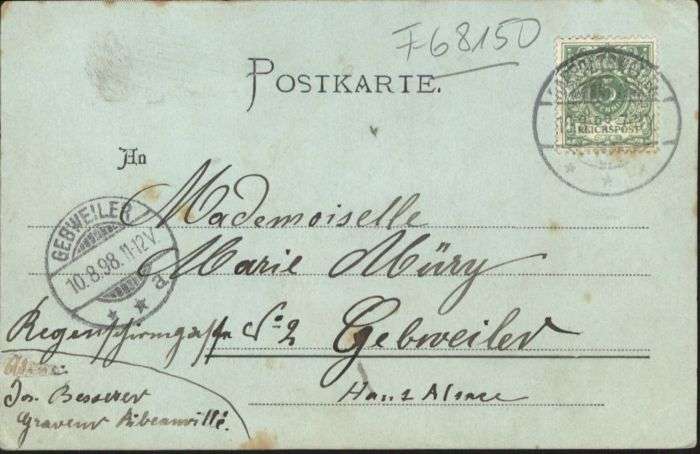 F68150
POSTKARTE.
5
REICHSPOST
An
Mademoiselle
GEBWEILER
10.8.98.11-12V.
a
Marie Müry
Regenschirmgasse No 2 Gebweiler
Haut Alsace
Jos. Besserer
Graveur Ribeauvillé.